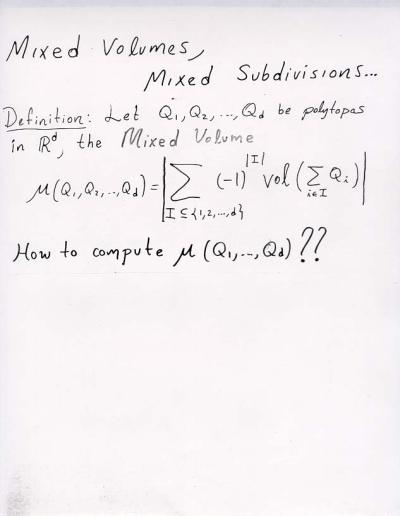 Mixed Volumes,
Mixed Subdivisions...
Definition: Let Q₁, Q₂, ..., Q_d be polytopas
in ℝᵈ, the Mixed Volume
μ(Q₁, Q₂, .., Q_d) = |∑_{I ⊆ {1,2,...,d}} (-1)^{|I|} vol (∑_{i∈I} Q_i)|
How to compute μ (Q₁, ..., Q_d) ??